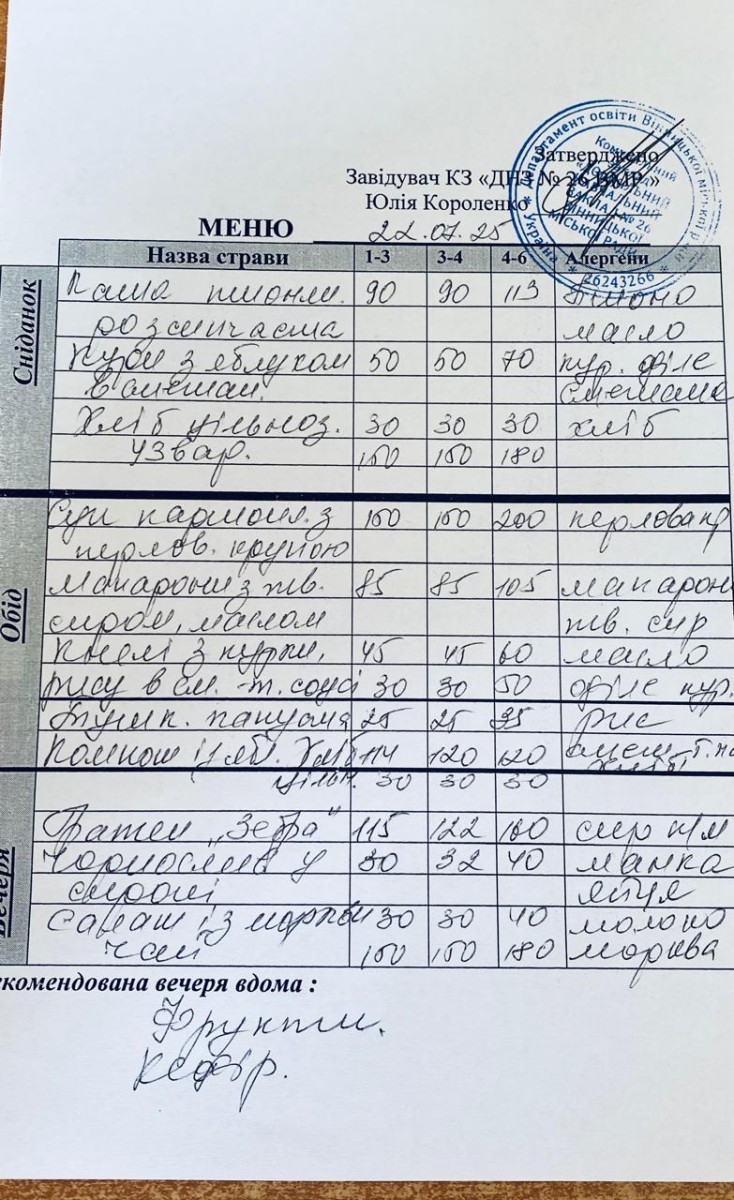 Затверджено
Завідувач КЗ «ДНЗ № 26 ВМР»
Юлія Короленко
МЕНЮ 22.07.25
Назва страви 1-3 3-4 4-6 Алергени
Сніданок
Каша пшонян. 90 90 113
розсипчаста масло
Кури з яблуком 50 50 70 кур. філе
в сметан. сметана
Хліб цільноз. 30 30 30 хліб
Узвар. 150 150 180
Обід
Суп картопл. з 150 150 200 перлова кр
перлов. крупою
Макарони з тв. 85 85 105 макарон
сиром, маслом тв. сир
Кнелі з курки, 45 45 60 масло
рису в см.-т. соусі 30 30 50 філе кур.
Тушк. капуста 25 25 35 рис
Компот із яб. Хліб 114 120 120 смет-т.па
цільн. 30 30 30 хліб
Вечеря
"Зебра" 115 122 160 сир к/м
Чорнослив у 30 32 40 манка
сиропі яйця
Салат із моркви 30 30 40 молоко
чай 150 150 180 морква
екомендована вечеря вдома :
Фрукти.
Кефір.
Україна * Департамент освіти Вінницької міської ради
ВІННИЦЬКОЇ
МІСЬКОЇ РАДИ
* 26243266 *